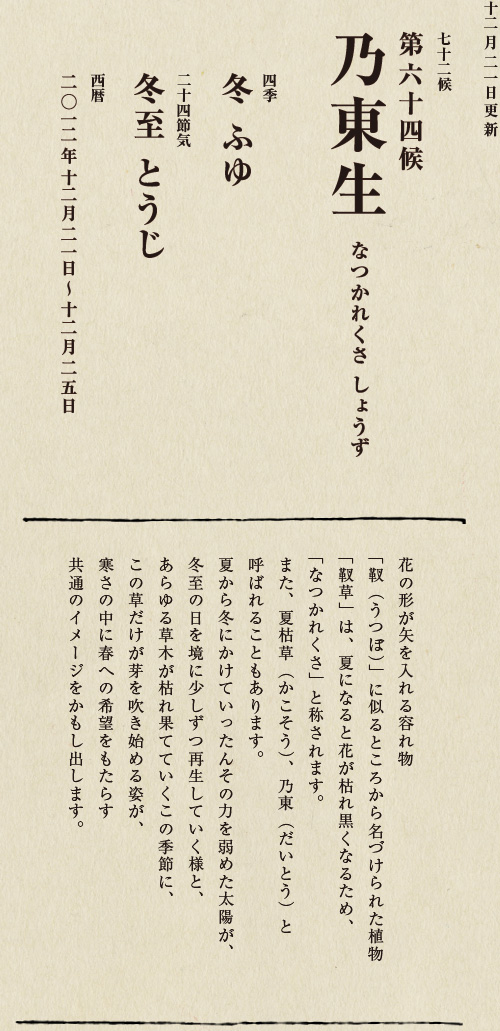 十二月二一日更新
七十二候
第六十四候
乃東生 なつかれくさ しょうず
四季
冬 ふゆ
二十四節気
冬至 とうじ
西暦
二〇一二年十二月二一日～十二月二五日
花の形が矢を入れる容れ物
「靫（うつぼ）」に似るところから名づけられた植物
「靫草」は、夏になると花が枯れ黒くなるため、
「なつかれくさ」と称されます。
また、夏枯草（かこそう）、乃東（だいとう）と
呼ばれることもあります。
夏から冬にかけていったんその力を弱めた太陽が、
冬至の日を境に少しずつ再生していく様と、
あらゆる草木が枯れ果てていくこの季節に、
この草だけが芽を吹き始める姿が、
寒さの中に春への希望をもたらす
共通のイメージをかもし出します。